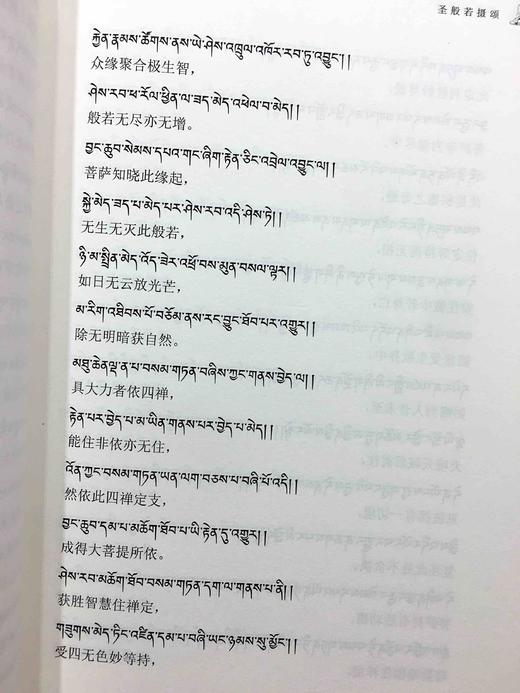 圣般若摄颂
རྐྱེན་རྣམས་ཚོགས་ནས་ཡེ་ཤེས་འཁྲུལ་འཁོར་རབ་ཏུ་འབྱུང་།།
众缘聚合极生智，
ཤེས་རབ་ཕ་རོལ་ཕྱིན་ལ་ཟད་མེད་འཕེལ་བ་མེད།།
般若无尽亦无增。
བྱང་ཆུབ་སེམས་དཔའ་གང་ཞིག་རྟེན་ཅིང་འབྲེལ་འབྱུང་ལ།།
菩萨知晓此缘起，
སྐྱེ་མེད་ཟད་པ་མེད་པར་ཤེས་རབ་འདི་ཤེས་ཏེ།།
无生无灭此般若，
ཉི་མ་སྤྲིན་མེད་འོད་ཟེར་འཕྲོ་བས་མུན་བསལ་ལྟར།།
如日无云放光芒，
མ་རིག་འཐིབས་པོ་བཅོམ་ནས་རང་བྱུང་ཐོབ་པར་འགྱུར།།
除无明暗获自然。
མཐུ་ཆེན་ལྡན་པ་བསམ་གཏན་བཞིས་ཀྱང་གནས་བྱེད་ལ།།
具大力者依四禅，
རྟེན་པར་བྱེད་པ་མ་ཡིན་གནས་པར་བྱེད་པ་མེད།།
能住非依亦无住，
འོན་ཀྱང་བསམ་གཏན་ཡན་ལག་བཅས་པ་བཞི་པོ་འདི།།
然依此四禅定支，
བྱང་ཆུབ་དམ་པ་མཆོག་ཐོབ་པ་ཡི་རྟེན་དུ་འགྱུར།།
成得大菩提所依。
ཤེས་རབ་མཆོག་ཐོབ་བསམ་གཏན་དག་ལ་གནས་པ་ནི།།
获胜智慧住禅定，
གཟུགས་མེད་ཏིང་འཛིན་དམ་པ་བཞི་ཡང་ཉམས་སུ་མྱོང་།།
受四无色妙等持，